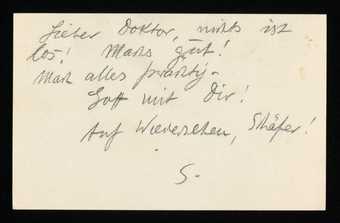 Lieber Doktor, nichts ist
los! Machs gut!
Mach alles prächtig –
Gott mit Dir!
Auf Wiedersehen, Schäfer!
S.